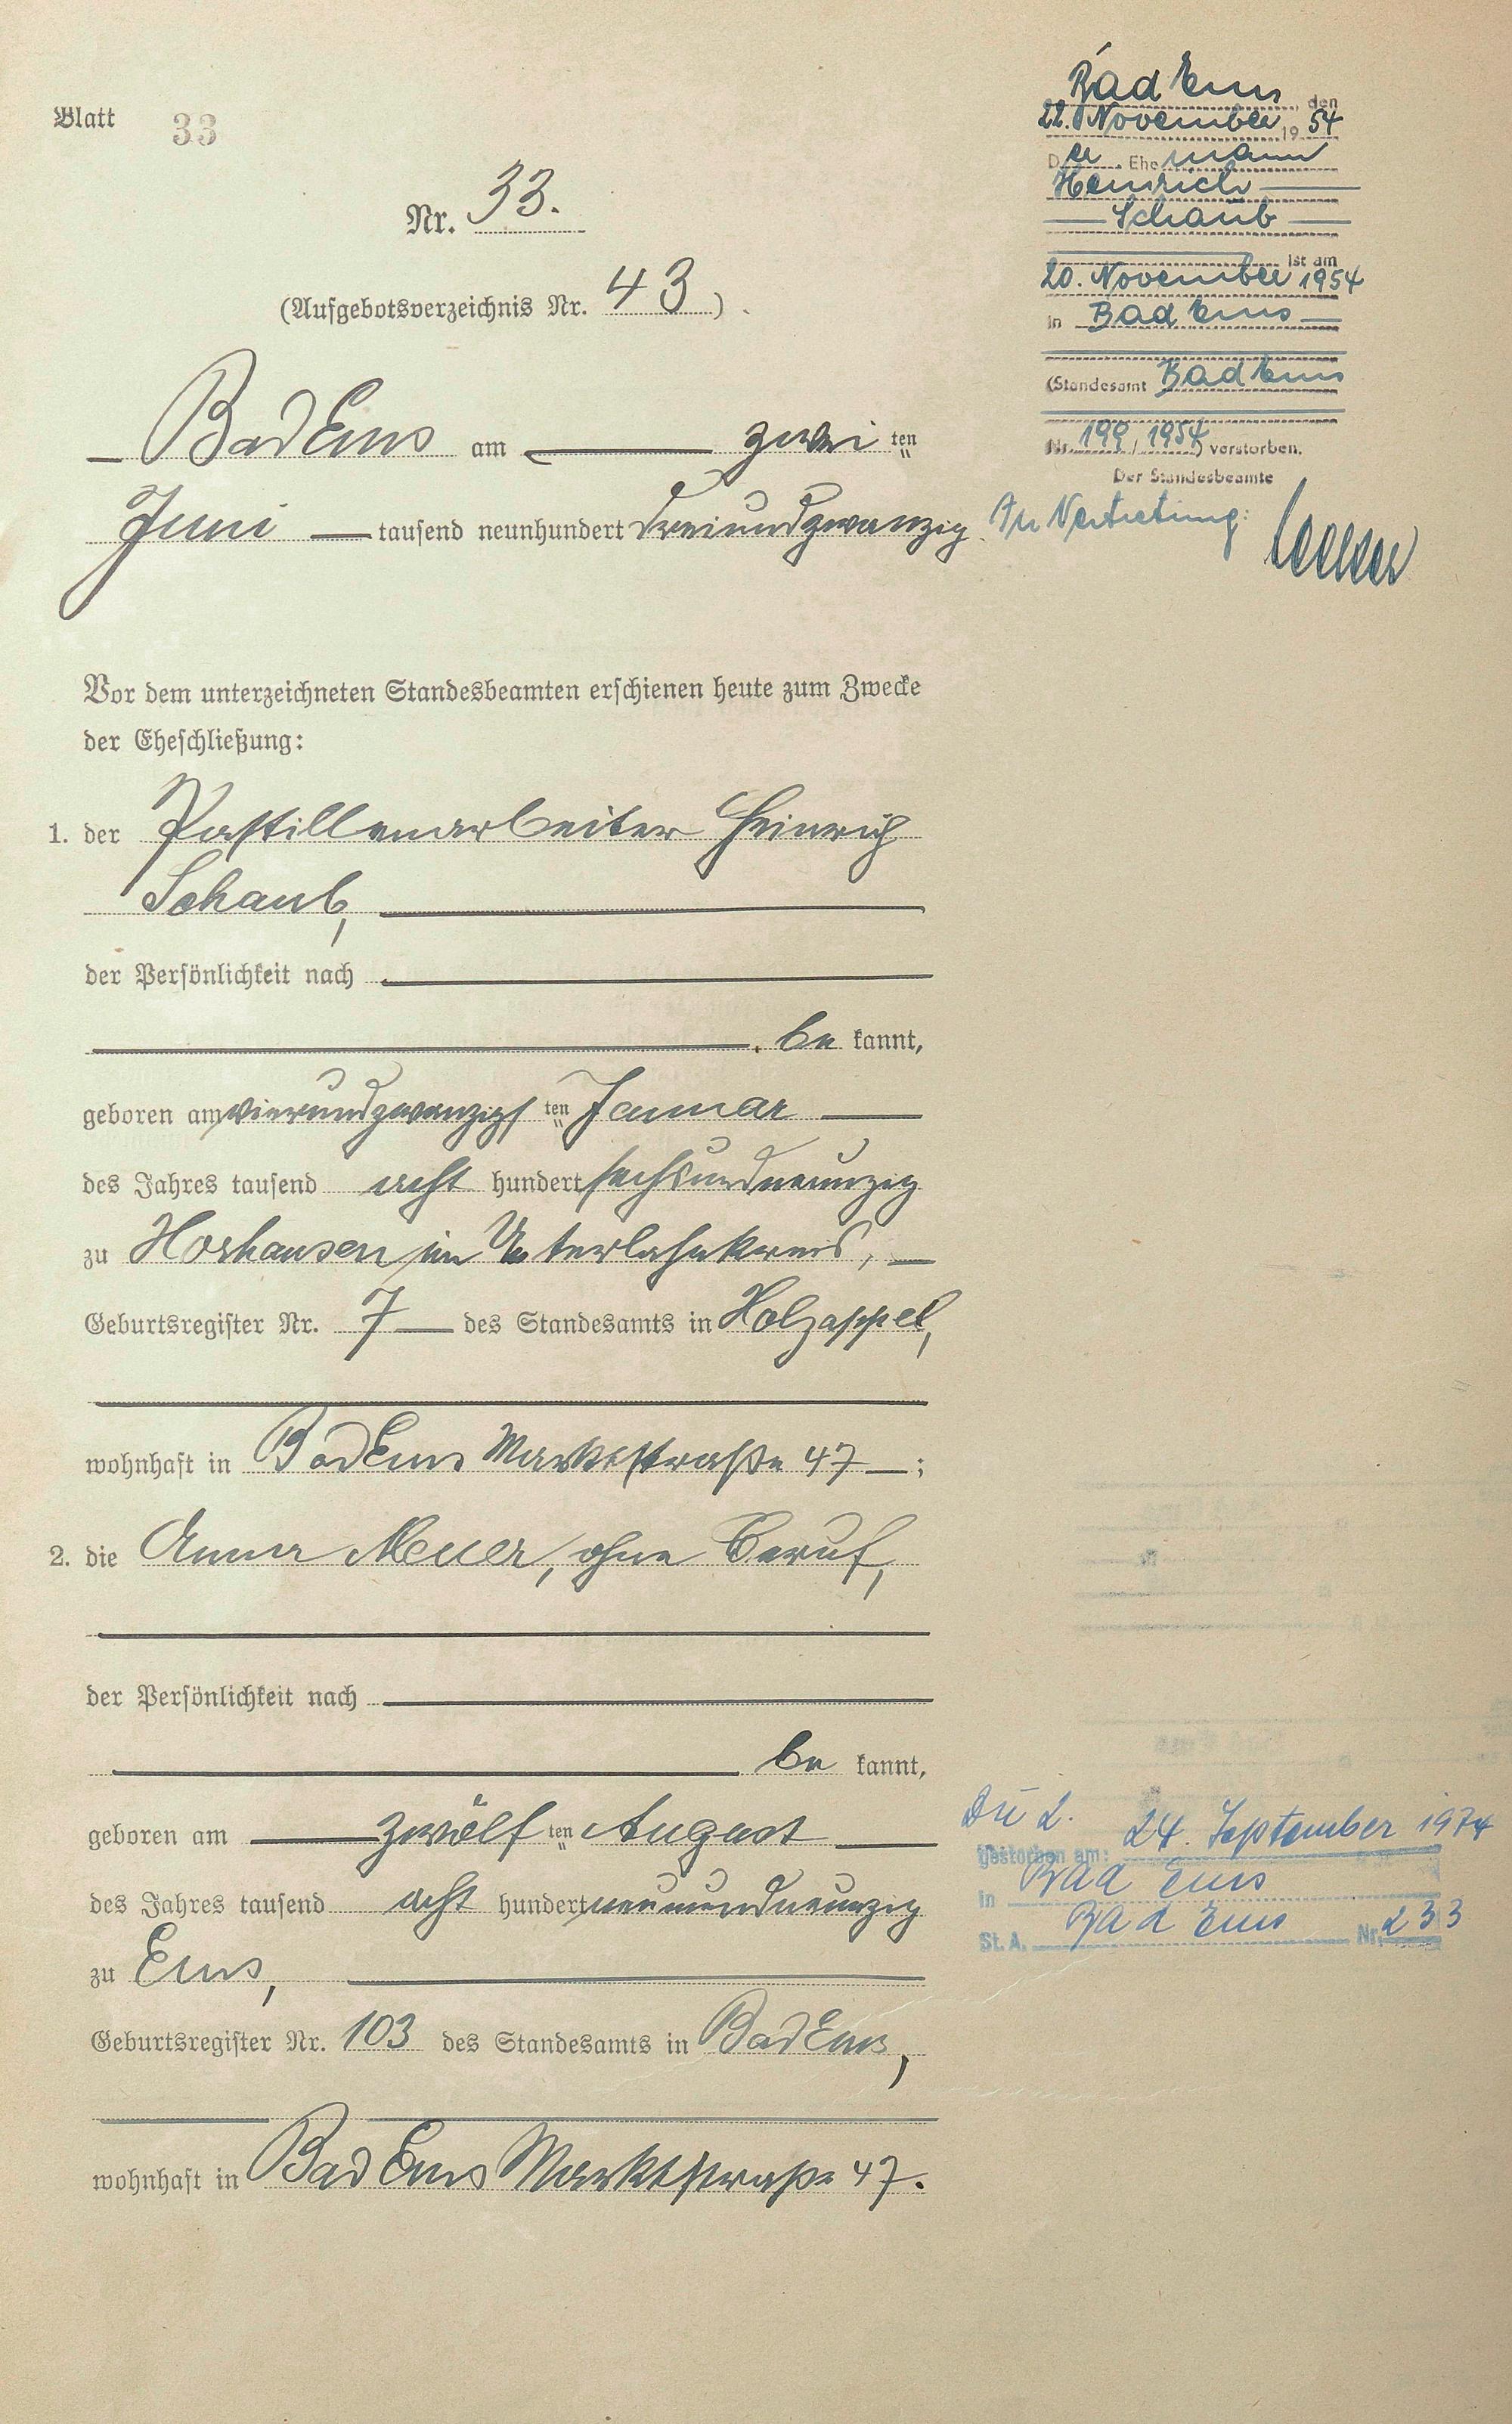 Blatt 33
Nr. 33.
(Aufgebotsverzeichnis Nr. 43)
Bad Ems am zwei ten
Juni tausend neunhundert dreiundzwanzig.
Vor dem unterzeichneten Standesbeamten erschienen heute zum Zwecke
der Eheschließung:
1. der Pastillenarbeiter Heinrich
Schaub,
der Persönlichkeit nach
be kannt,
geboren am vierundzwanzigs ten Januar
des Jahres tausend acht hundert sechsundneunzig
zu Horhausen im Unterlahnkreis,
Geburtsregister Nr. 7 des Standesamts in Holzappel,
wohnhaft in Bad Ems Marktstraße 47;
2. die Anna Meuer, ohne Beruf,
der Persönlichkeit nach
be kannt,
geboren am zwölf ten August
des Jahres tausend acht hundert neunundneunzig
zu Ems,
Geburtsregister Nr. 103 des Standesamts in Bad Ems,
wohnhaft in Bad Ems Marktstraße 47.
Bad Ems, den
22. November 19 54
Der Ehemann
Heinrich
Schaub
ist am
20. November 1954
in Bad Ems
(Standesamt Bad Ems
Nr. 199/1954) verstorben.
Der Standesbeamte
In Vertretung:
Die 2.
gestorben am: 24. September 1974
in Bad Ems
St. A. Bad Ems Nr. 233